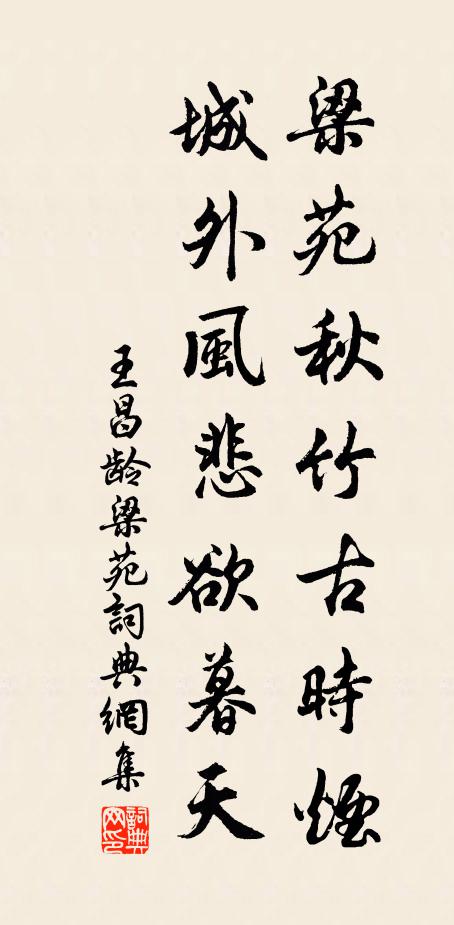 梁苑秋竹古時煙
城外風悲欲暮天
王昌龄梁苑詞典網集
詞典網印